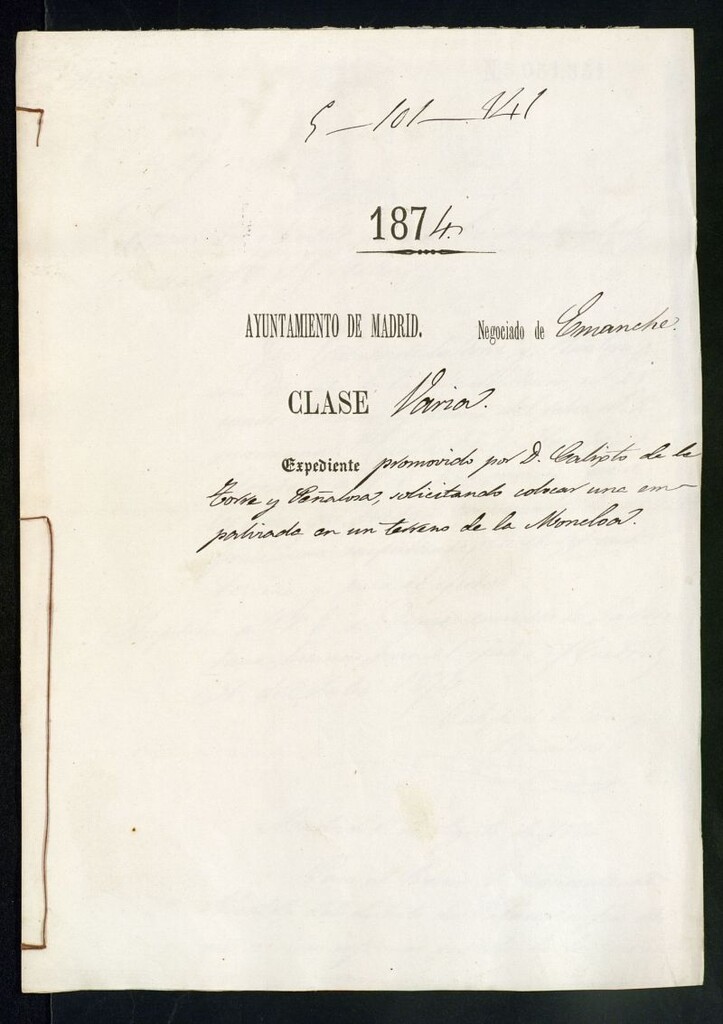 5-101-141
1874.
AYUNTAMIENTO DE MADRID. Negociado de Emanche.
CLASE Varia.
Expediente promovido por D. Calixto de la
Torre y Peñalosa, solicitando colocar una em-
palizada en un terreno de la Moncloa.